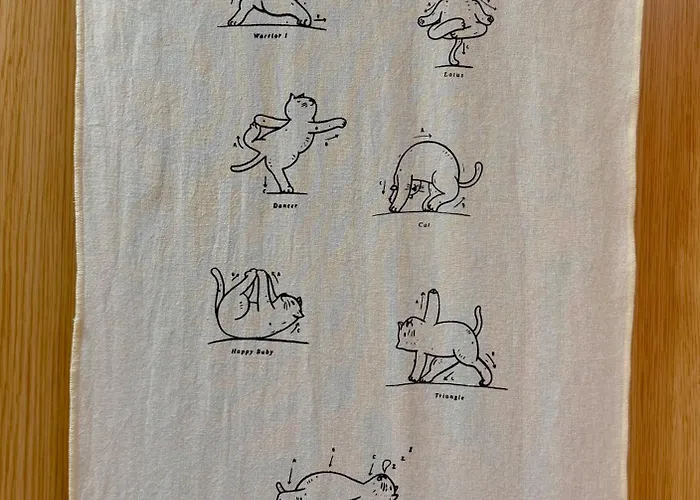 Warrior I
Lotus
Dancer
Cat
Happy Baby
Triangle
A B C z z z